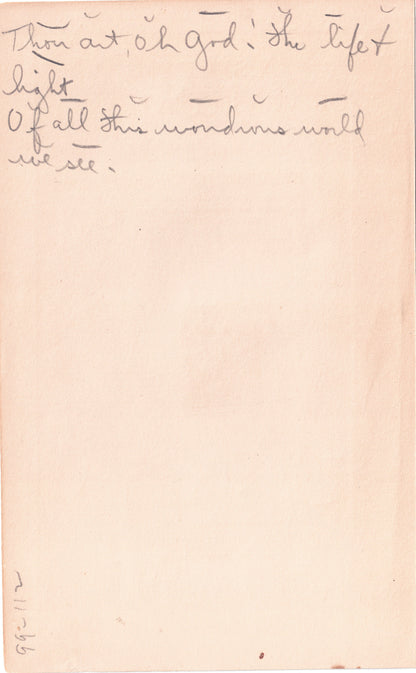 Thou art, oh God! the life &
light
Of all this wondrous world
we see.
99-112